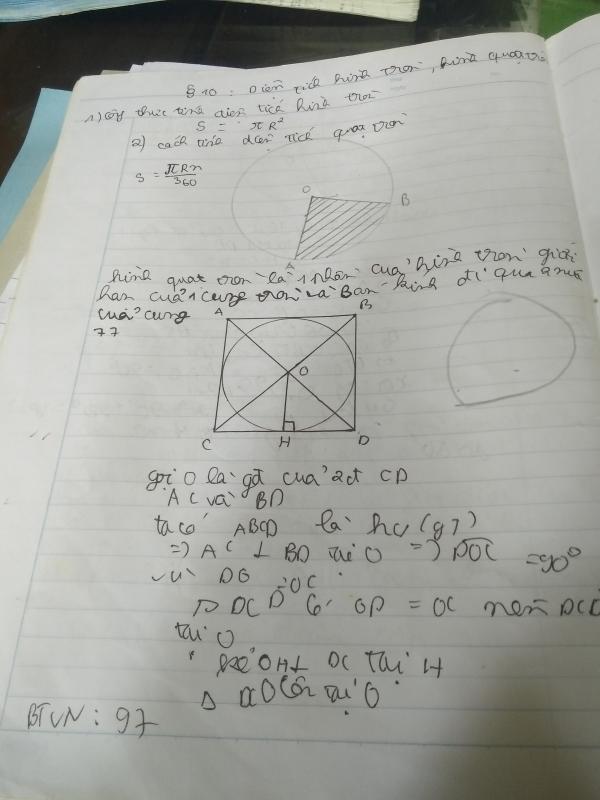 § 10 : Diện tích hình tròn, hình quạt tròn
1) Công thức tính diện tích hình tròn
S = πR²
2) cách tính diện tích quạt tròn
S = πRn/360
O
B
A
hình quạt tròn là 1 phần của hình tròn giới
hạn của 1 cung tròn và Ban kính đi qua 2 mút
của cung
77
A
B
O
C
H
D
gọi O là gđ của 2đt CD
AC và BD
ta có ABCD là hv (gt)
=> AC ⊥ BD tại O => DOC = 90°
DO = OC
DCD có OD = OC nên DCD
tại O
kẻ OH ⊥ DC tại H
Δ cân tại O
BTVN : 97